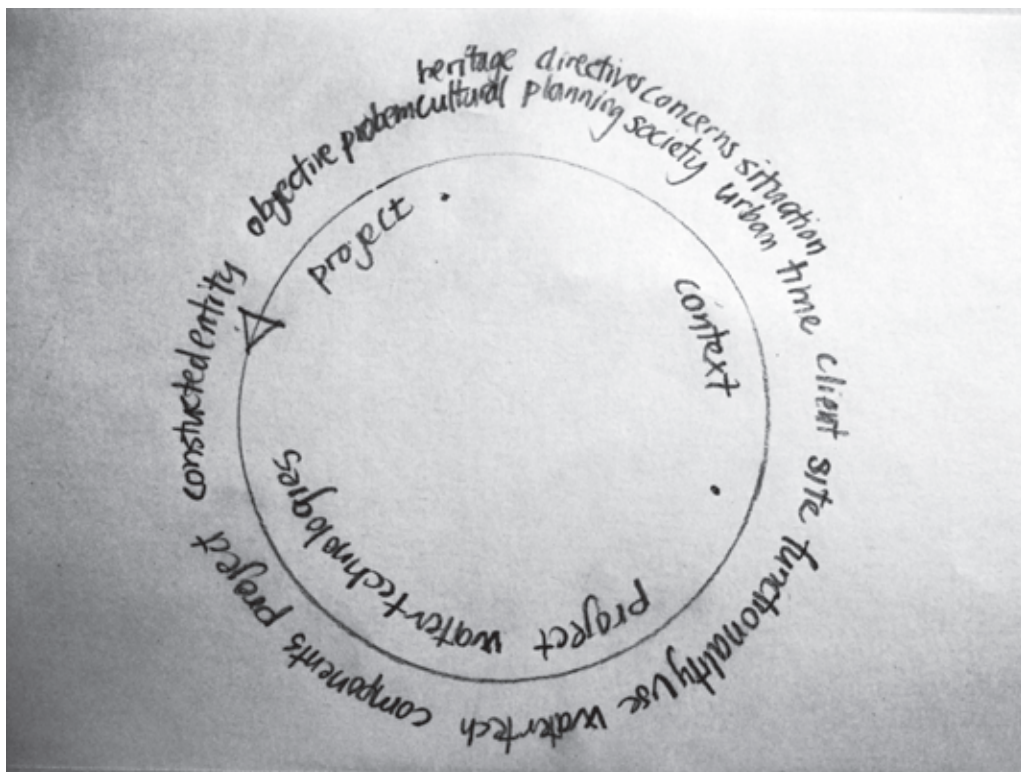 heritage directives concerns situation
objective probem cultural planning society urban time client site functionality use watertech components project constucted entity
project
context
project water technologies